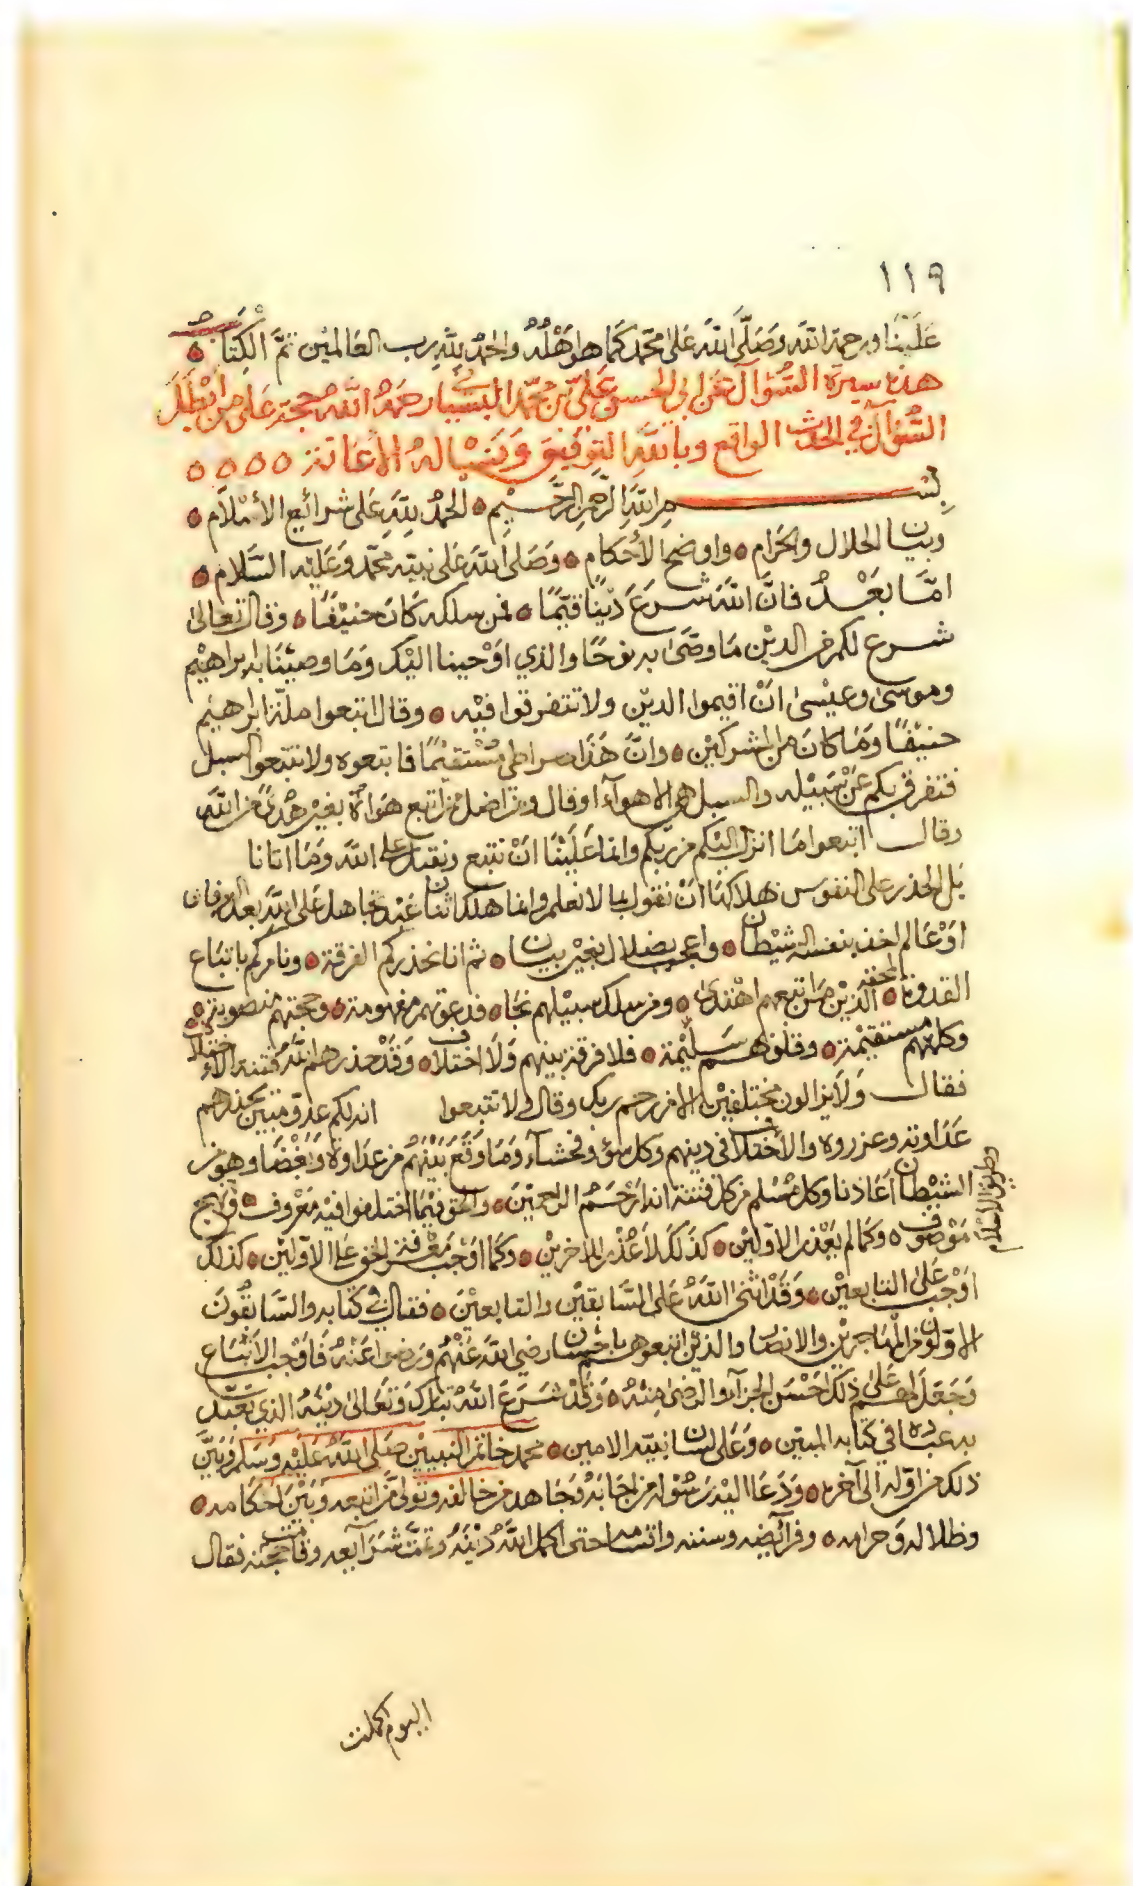 ١١٩
علينا ورحمة الله وصلى الله على محمد كما هو اهله والحمد لله رب العالمين تم الكتاب
هذه سيرة السؤال عن ابي الحسن علي بن محمد البسياني رحمه الله حجة على من ابطل
السؤال في الحدث الواقع وبالله التوفيق ونسأله الاعانة
بسم الله الرحمن الرحيم الحمد لله على شرائع الأسلام
وبيان الحلال والحرام واوضح الأحكام وصلى الله على نبيه محمد وعليه السلام
امّا بعد فانّ الله شرع دينًا قيّمًا فمن سلكه كان حنيفًا وقال تعالى
شرع لكم من الدين ما وصّى به نوحًا والذي اوحينا اليك وما وصينا به ابراهيم
وموسى وعيسى ان اقيموا الدين ولا تتفرقوا فيه وقال اتبعوا ملّة ابراهيم
حنيفًا وما كان من المشركين وانّ هذا صراطي مستقيمًا فاتبعوه ولا تتبعوا السبل
فتفرق بكم عن سبيله والسبل هي الاهواء وقال ومن اضل ممن اتبع هواه بغير هدى من الله
وقال اتبعوا ما انزل اليكم من ربكم وانما علينا ان نتبع ونقبل على الله وما اتانا
بل الحذر على النفوس هلاكها ان نقول بما لا نعلم وانما هلك اثنان عبد تجاهل على الله بعد العرفان
او عالم لنفسه شيطان واعجب بضلال بغير بيان ثم انا نحذركم الفرقة ونامركم باتباع
القدوة المحقة الذين من اتبعهم اهتدى ومن سلك سبيلهم نجا فدعوتهم مفهومة وحجتهم منصوبة
وكلمتهم مستقيمة وقلوبهم سليمة فلا فرقة بينهم ولا اختلاف وقد حذرهم الله فتنة الاختلاف
فقال ولا يزالون مختلفين الا من رحم ربك وقال لا تتبعوا انه لكم عدو مبين يحذرهم
عداوته وغروره والأختلاف في دينهم وكل سوء وفحشاء وما وقع بينهم من عداوة وبغضا وهو من
الشيطان اعاذنا وكل مسلم من كل فتنة انه ارحم الراحمين والحق فيما اختلفوا فيه معروف
وطريق الاسلام
موصوف وكما لم يعذر الاولين كذلك لا عذر للاخرين وكما اوجب معرفة الحق على الاولين كذلك
اوجب على التابعين وقد اثنى الله على السابقين والتابعين فقال في كتابه والسابقون
الاولون من المهاجرين والانصار والذين اتبعوهم باحسان رضي الله عنهم ورضوا عنه فاوجب الاتباع
وجعل لهم على ذلك احسن الجزاء والرضى منه وقد شرع الله تبارك وتعالى دينه الذي تعبّد
به عباده في كتابه المبين وعلى لسان نبيّه الامين محمد خاتم النبيين صلى الله عليه وسلم وبيّن
ذلك من اوله الى آخره ودعا اليه رسوله من اجابه وجاهد من خالفه وتولى من اتبعه وبين احكامه
وحلاله وحرامه وفرائضه وسننه حتى اكمل الله دينه وتمت شرايعه وقامت حجته فقال
اليوم اكملت